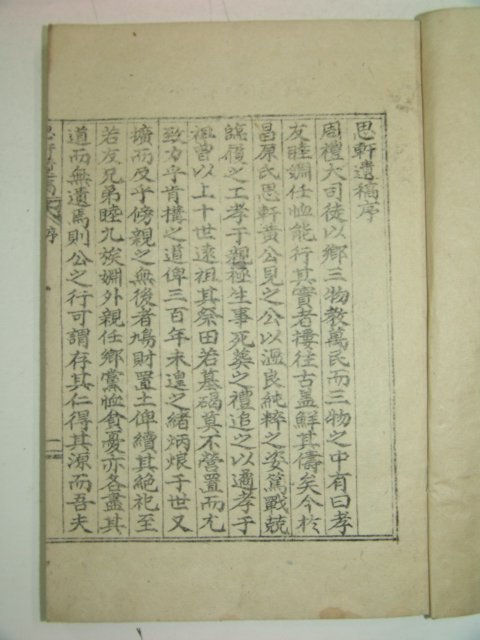 思軒遺稿序
周禮大司徒以鄉三物教萬民而三物之中有曰孝
友睦婣任恤能行其實者摟往古盖鮮其儔矣今於
昌原氏思軒黄公見之公以溫良純粹之姿篤戰兢
臨履之工孝于親極生事死葬之禮追之以適孝于
祖曽以上十世遠祖其祭田若墓碣莫不營置而尤
致力乎肯構之道俾三百年未遑之緒炳烺于世又
擴而及乎傍親之無後者鳩財置土俾續其絶祀至
若友兄弟睦九族婣外親任鄉黨恤貧憂亦各盡其
道而無遺焉則公之行可謂存其仁得其源而吾夫
序
一